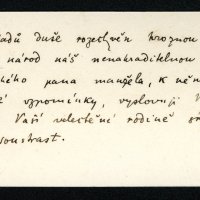 duše rozechvěn hroznou
národ náš nenahraditelnou
ného pana manžela, k něm
é vzpomínky, vyslovuji V
Vaší velectěné rodině
soustrast.